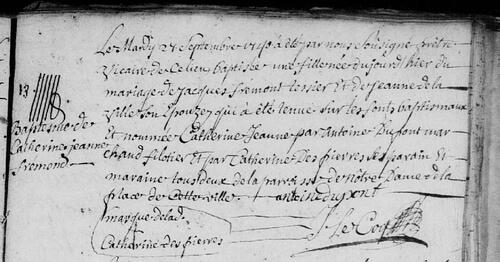 Le Mardy 27 Septembre 1740 a été par nous soussigné prêtre
vicaire de ce lieu baptisée une fille née du jourd'hier du
mariage de Jacques fremont tessier Et de Jeanne de la
ville son Epouze, qui a été tenue sur les fonts baptismaux
Et nommée Catherine Jeanne par Antoine Dupont mar
chand filotier Et par Catherine Des pierres ses parain Et
maraine tous deux de la parroisse de nôtre Dame de la
place de cette ville. antoine dupont
marque de lad.
Catherine des pierres
J. le Coq
13
Baptesme de
Catherine jeanne
fremond